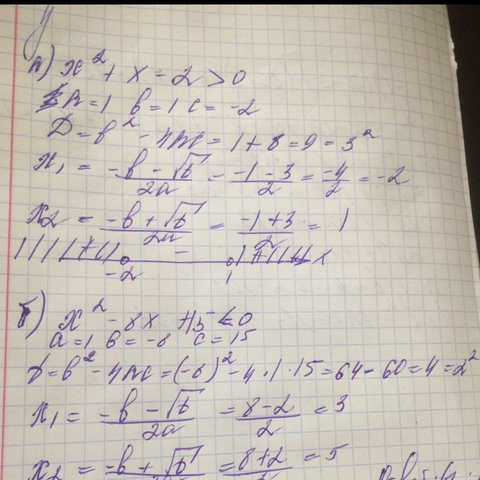 а) x² + x - 2 > 0
a = 1 b = 1 c = -2
D = b² - 4ac = 1 + 8 = 9 = 3²
x₁ = (-b - √D)/2a = (-1 - 3)/2 = -4/2 = -2
x₂ = (-b + √D)/2a = (-1 + 3)/2 = 1
+ - + x
-2 1
б) x² - 8x + 15 < 0
a = 1 b = -8 c = 15
D = b² - 4ac = (-8)² - 4 · 1 · 15 = 64 - 60 = 4 = 2²
x₁ = (-b - √D)/2a = (8 - 2)/2 = 3
x₂ = (-b + √D)/2a = (8 + 2)/2 = 5